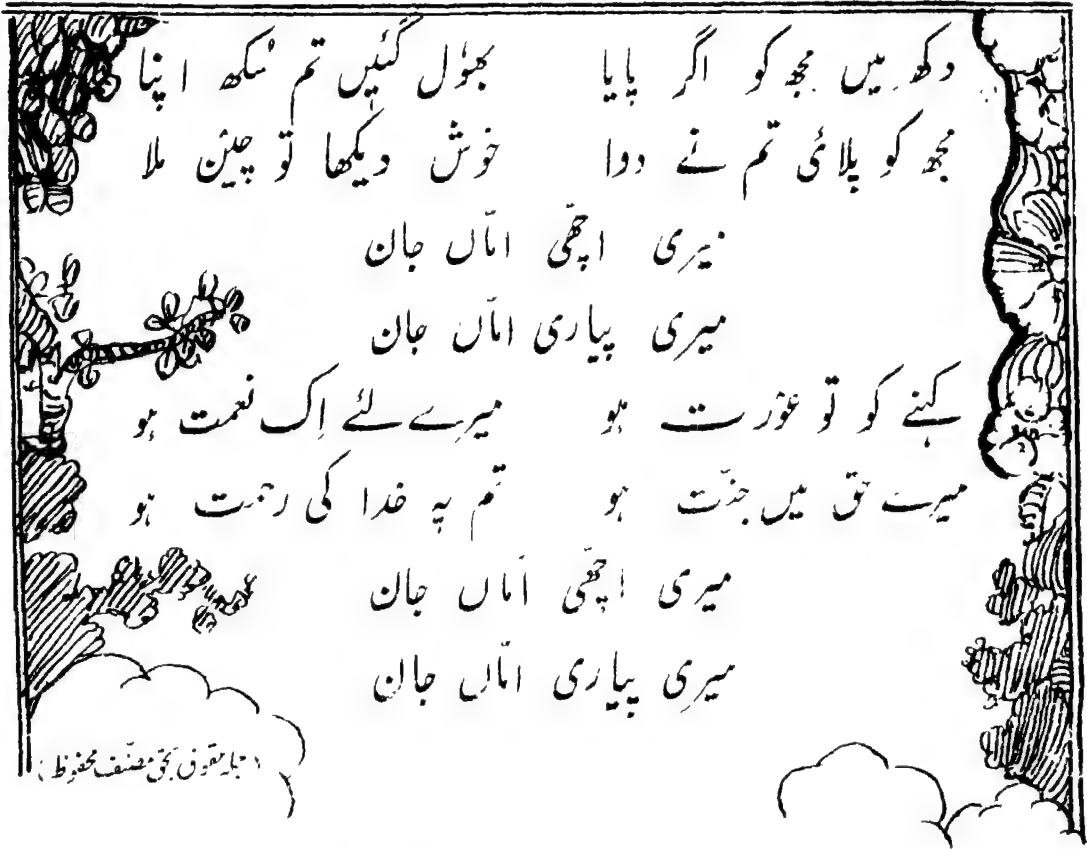 دکھ میں مجھ کو اگر پایا بھول گئیں تم سُکھ اپنا
مجھ کو پلائی تم نے دوا خوش دیکھا تو چین ملا
میری اچھّی امّاں جان
میری پیاری امّاں جان
کہنے کو تو عورت ہو میرے لئے اِک نعمت ہو
میرے حق میں جنّت ہو تم پہ خدا کی رحمت ہو
میری اچھّی امّاں جان
میری پیاری امّاں جان
(جملہ حقوق بحق مصنّف محفوظ)